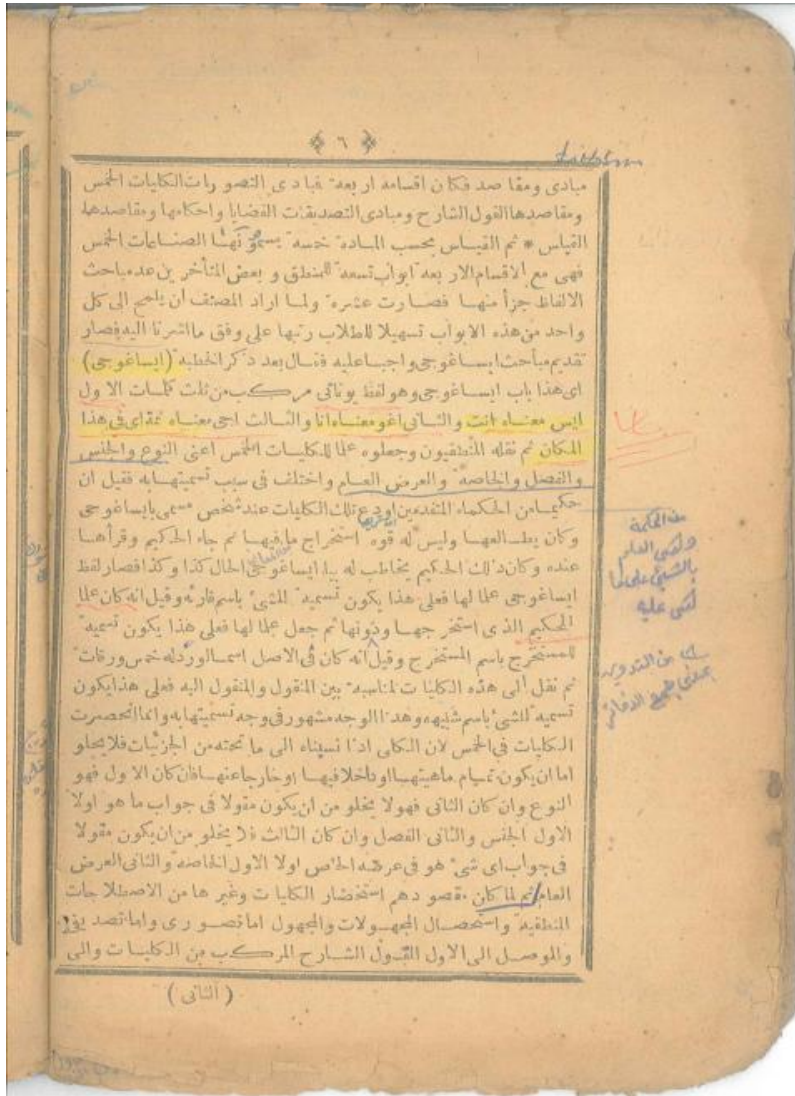 ﴿ ٦ ﴾
مبادى ومقاصد فكان اقسامه اربعة فبادى التصورات الكليات الخمس
ومقاصدها القول الشارح ومبادى التصديقات القضايا واحكامها ومقاصدها
القياس * ثم القياس بحسب المادة خمسة يسمونها الصناعات الخمس
فهى مع الاقسام الاربعة ابواب تسعة للمنطق وبعض المتأخرين عد مباحث
الالفاظ جزأ منها فصارت عشرة ولما اراد المصنف ان يلمح الى كل
واحد من هذه الابواب تسهيلا للطلاب رتبها على وفق ما اشرنا اليه فصار
تقديم مباحث ايساغوجى واجبا عليه فقال بعد ذكر الخطبة (ايساغوجى)
اى هذا باب ايساغوجى وهو لفظ يونانى مركب من ثلث كلمات الاول
ايس معناه انت والثانى اغو معناه انا والثالث اجى معناه ثمة اى فى هذا
المكان ثم نقله المنطقيون وجعلوه علما للكليات الخمس اعنى النوع والجنس
والفصل والخاصة والعرض العام واختلف فى سبب تسميتها به فقيل ان
حكيما من الحكماء المتقدمين اودع تلك الكليات عند شخص مسمى بايساغوجى
وكان يطالعها وليس له قوة استخراج ما فيها ثم جاء الحكيم وقرأها
عنده وكان ذلك الحكيم يخاطب له بيا ايساغوجى الحال كذا وكذا فصار لفظ
ايساغوجى علما لها فعلى هذا يكون تسمية للشئ باسم قارئه وقيل انه كان علما
الحكيم الذى استخرجها ودونها ثم جعل علما لها فعلى هذا يكون تسمية
للمستخرج باسم المستخرج وقيل انه كان فى الاصل اسما لورد له خمس ورقات
ثم نقل الى هذه الكليات لمناسبة بين المنقول والمنقول اليه فعلى هذا يكون
تسمية للشئ باسم شبيهه وهذا الوجه مشهور فى وجه تسميتها به وانما انحصرت
الكليات فى الخمس لان الكلى اذا نسبناه الى ما تحته من الجزئيات فلا يخلو
اما ان يكون تمام ماهيتها او داخلا فيها او خارجا عنها فان كان الاول فهو
النوع وان كان الثانى فهو لا يخلو من ان يكون مقولا فى جواب ما هو اولا
الاول الجنس والثانى الفصل وان كان الثالث فلا يخلو من ان يكون مقولا
فى جواب اى شئ هو فى عرضه الخاص اولا الاول الخاصة والثانى العرض
العام ثم لما كان مقصودهم استحضار الكليات وغيرها من الاصطلاحات
المنطقية واستحصال المجهولات والمجهول اما تصورى واما تصديقى
والموصل الى الاول القول الشارح المركب من الكليات والى
( الثانى )